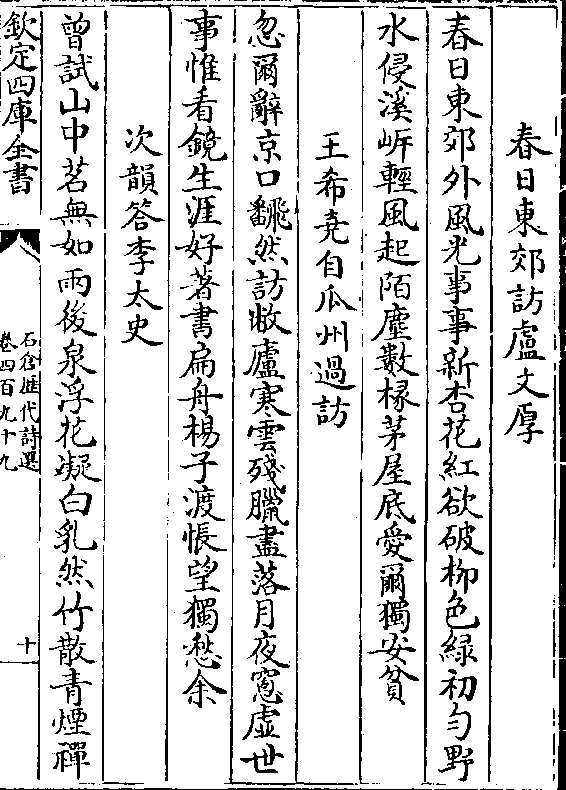 春日東郊訪盧文厚
春日東郊外風光事事新杏花紅欲破栁色緑初勻野
水侵溪岓輕風起陌塵數椽茅屋底愛爾獨安貧
王希堯自瓜州過訪
忽爾辭京口飜然訪敝廬寒雲殘臘盡落月夜窻虚世
事惟看鏡生涯好著書扁舟楊子渡悵望獨愁余
次韻答李太史
曾試山中茗無如雨後泉浮花凝白乳然竹散青煙禪
欽定四庫全書
石倉歴代詩選
卷四百九十九
十